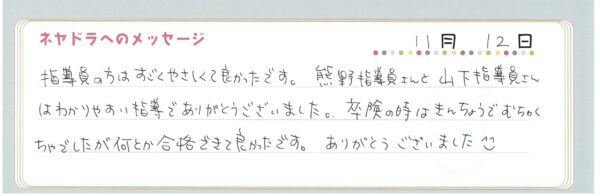 ネヤドラへのメッセージ
11月 12日
指導員の方はすごくやさしくて良かったです。 熊野指導員さんと山下指導員さん
はわかりやすい指導でありがとうございました。卒検の時はきんちょうでむちゃく
ちゃでしたが何とか合格できて良かったです。 ありがとうございました